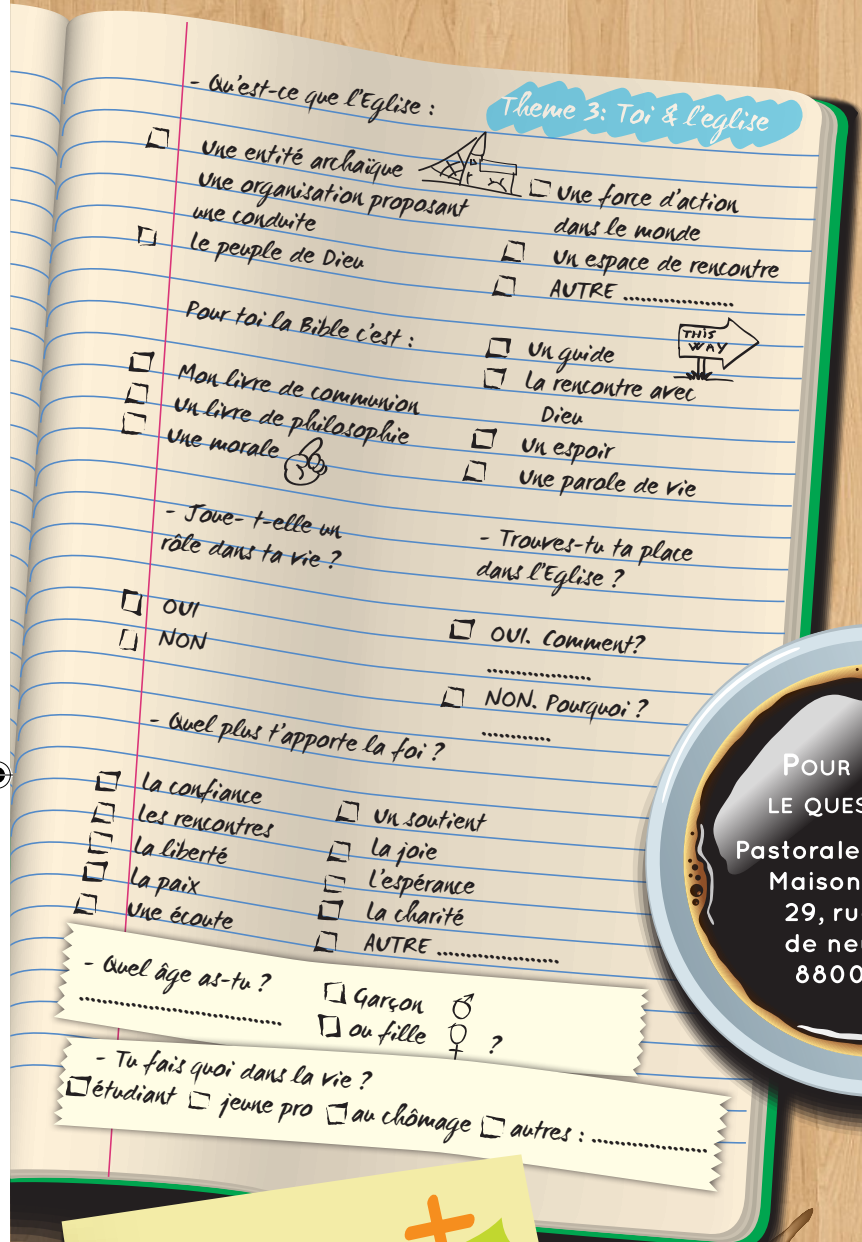 Theme 3: Toi & l'eglise
- Qu'est-ce que l'Eglise :
Une entité archaïque
Une organisation proposant
une conduite
Le peuple de Dieu
Une force d'action
dans le monde
Un espace de rencontre
AUTRE ..................
Pour toi la Bible c'est :
Mon livre de communion
Un livre de philosophie
Une morale
THIS
WAY
Un guide
La rencontre avec
Dieu
Un espoir
Une parole de vie
- Joue- t-elle un
rôle dans ta vie ?
OUI
NON
- Trouves-tu ta place
dans l'Eglise ?
OUI. Comment?
.................
NON. Pourquoi ?
...........
- Quel plus t'apporte la foi ?
La confiance
Les rencontres
La liberté
La paix
Une écoute
Un soutient
La joie
L'espérance
La charité
AUTRE ....................
- Quel âge as-tu ?
.................................
Garçon ♂
ou fille ♀ ?
- Tu fais quoi dans la vie ?
étudiant jeune pro au chômage autres : ...................
POUR
LE QUES
Pastorale
Maison
29, ru
de neu
8800